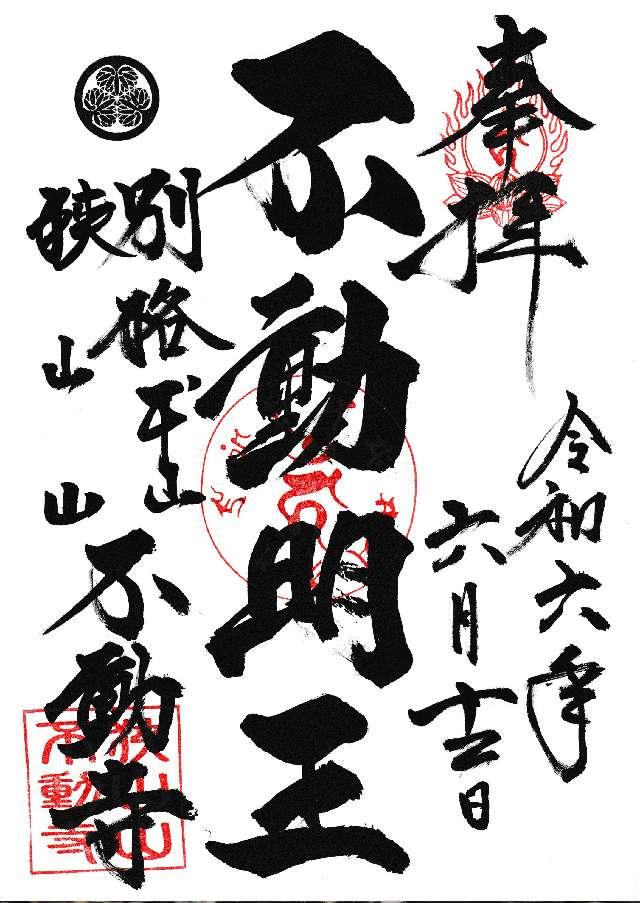 奉拝
令和六年
六月
不動明王
別格本山
狭山山
不動寺
狭山山
不動寺